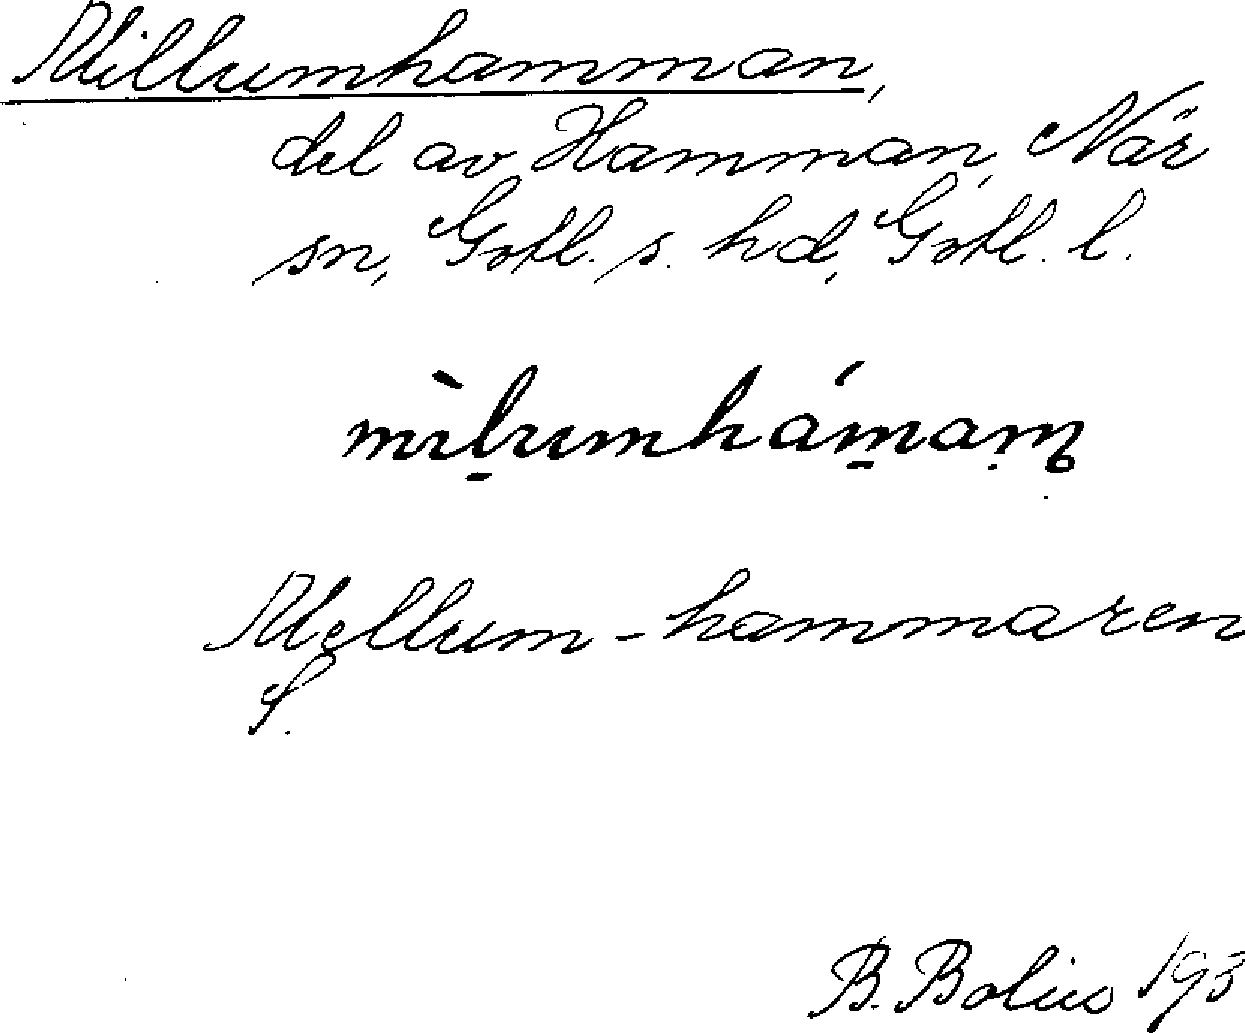 Millumhamman,
del av Hamman, När
sn, Gotl. s. hd, Gotl. l.
mìl̠umhám̠aṃ
Mellum-hammaren
S.
B. Bolius 193